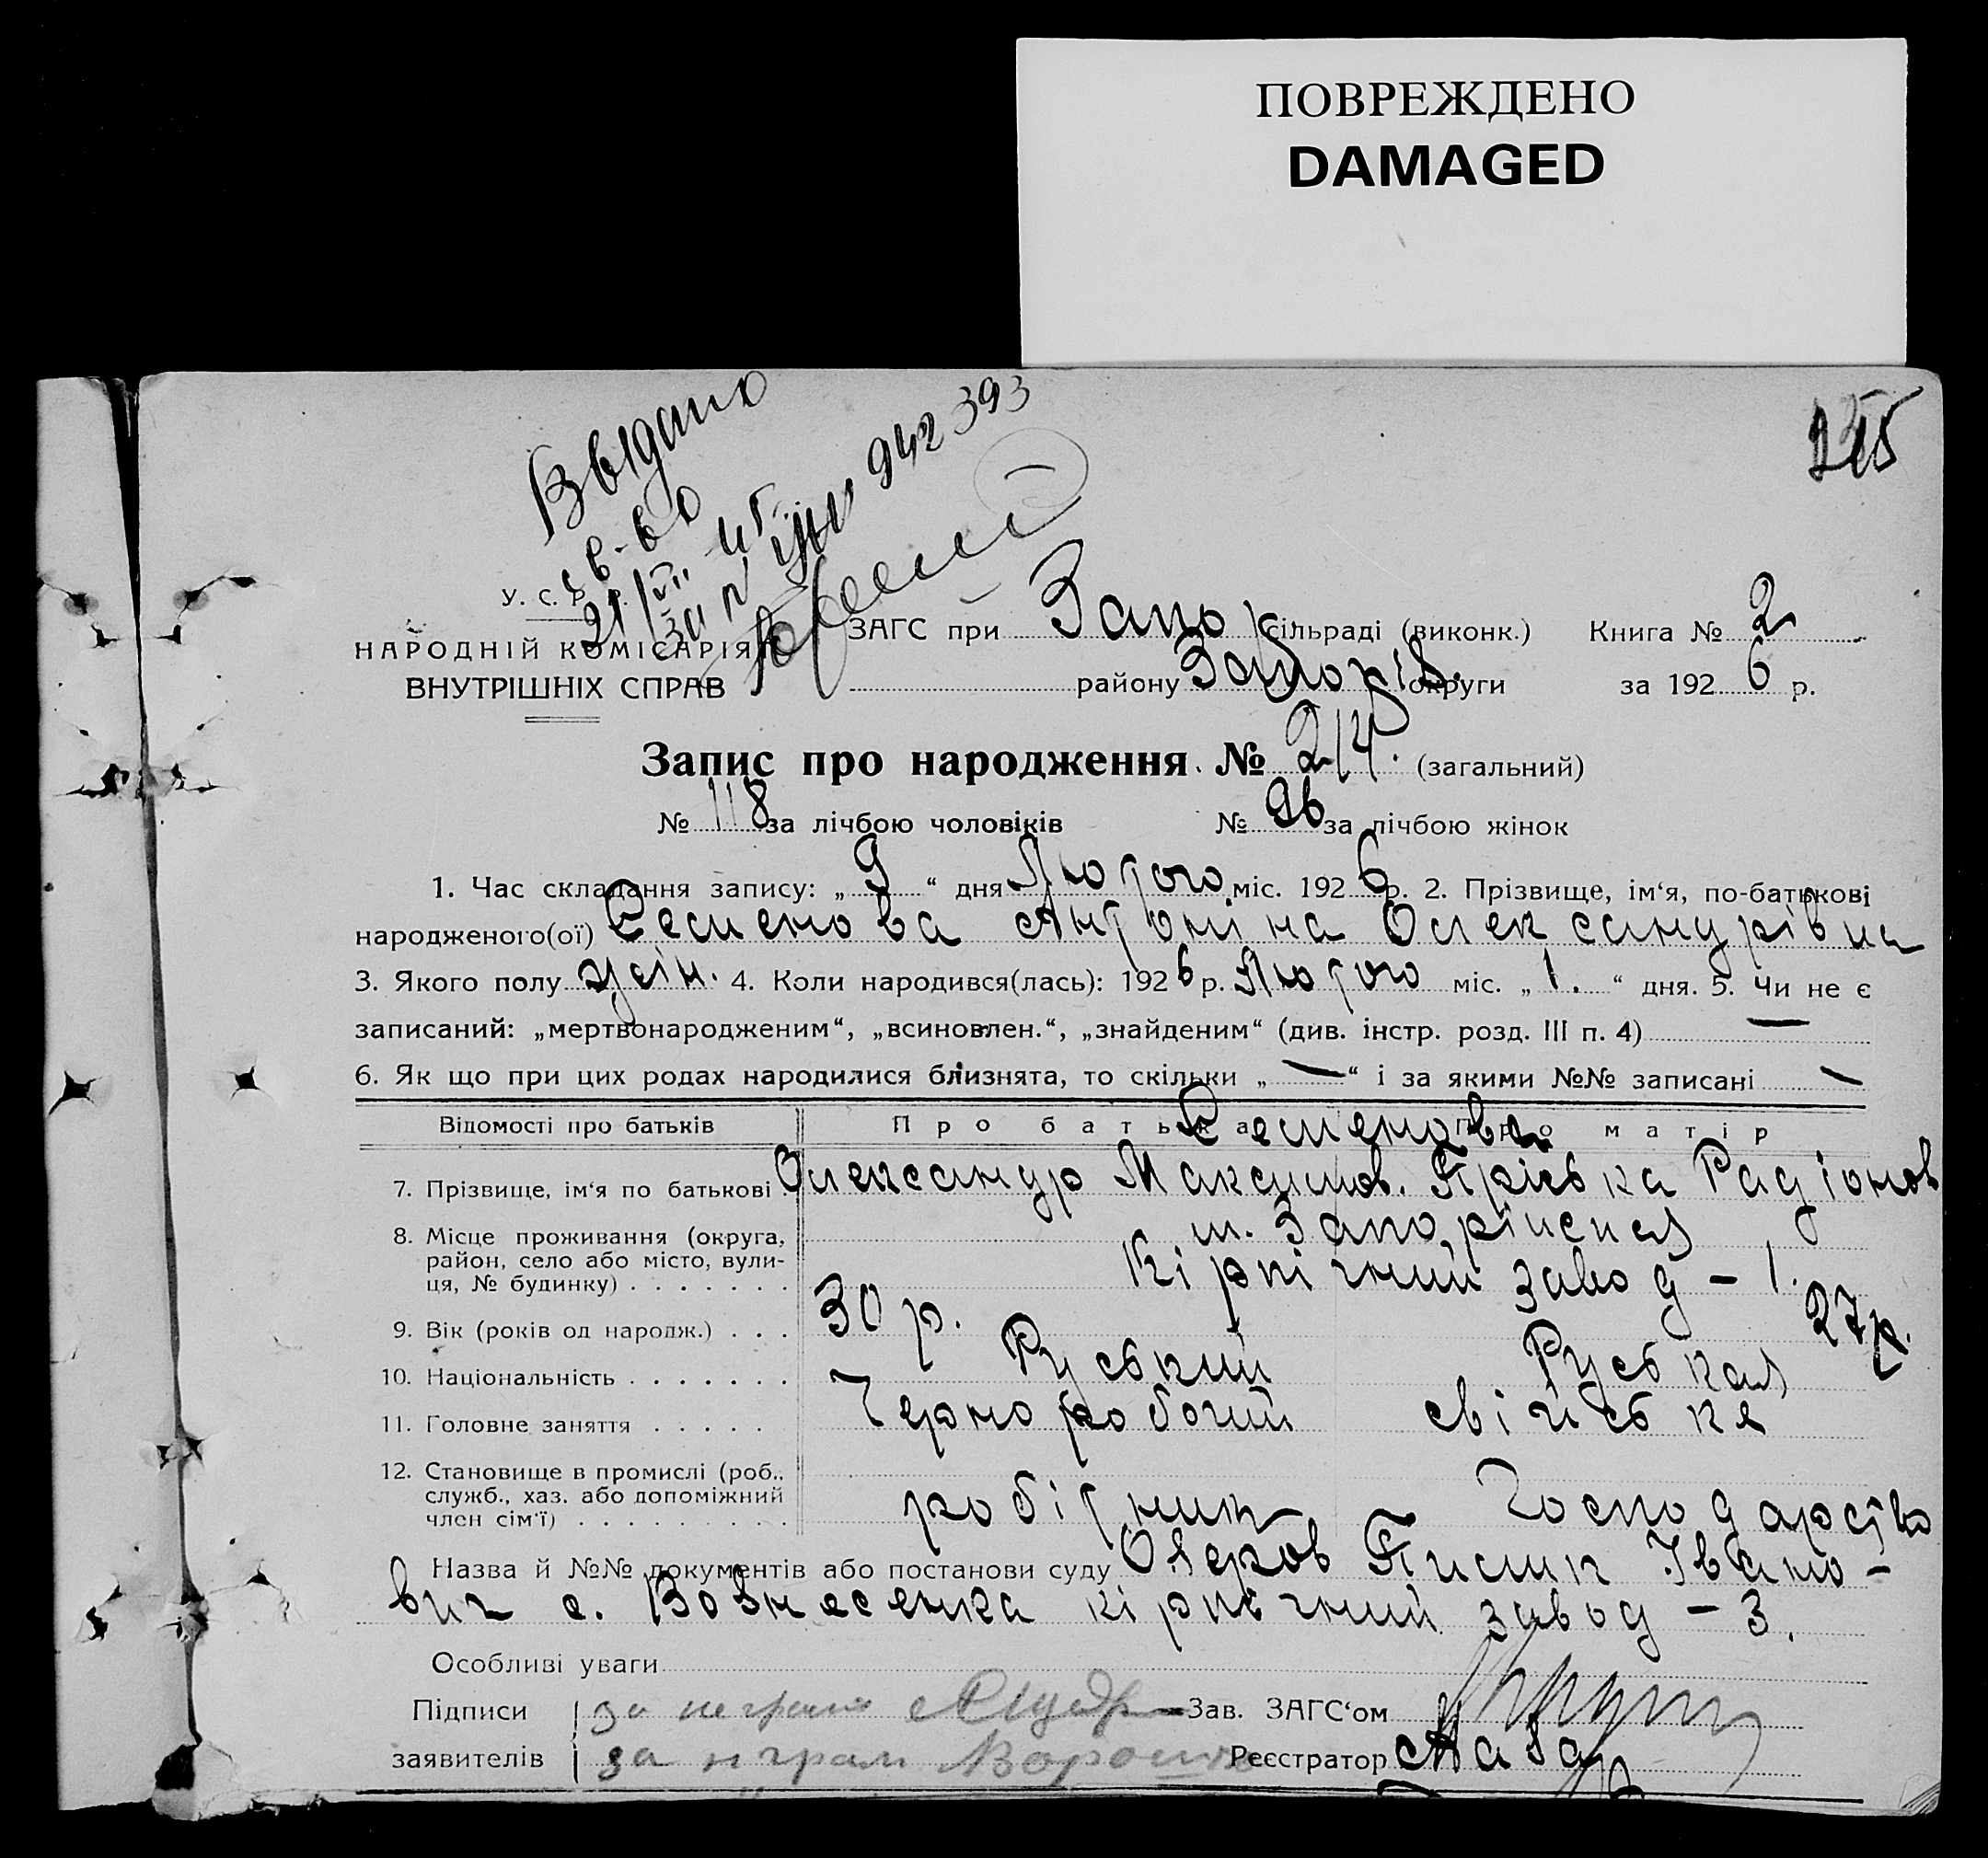 ПОВРЕЖДЕНО
DAMAGED
Выдано
св-во
942393
У. С. Р. Р.
НАРОДНІЙ КОМІСАРІЯТ
ВНУТРІШНІХ СПРАВ
ЗАГС при Запо сільраді (виконк.) Книга № 2
району Запоріз. округи за 1926 р.
Запис про народження № 214. (загальний)
№ 118 за лічбою чоловіків № 96 за лічбою жінок
1. Час складання запису: „9“ дня Лютого міс. 1926 р. 2. Прізвище, ім‘я, по-батькові
народженого(ої) Семенова Антоніна Олександрівна
3. Якого полу жін. 4. Коли народився(лась): 1926 р. Лютого міс. „1.“ дня. 5. Чи не є
записаний: „мертвонародженим“, „всиновлен.“, „знайденим“ (див. інстр. розд. III п. 4) —
6. Як що при цих родах народилися близнята, то скільки „—“ і за якими №№ записані —
Відомості про батьків Про батька Про матір
Семенови
7. Прізвище, ім‘я по батькові Олександр Максимов. Пріська Радіонов
8. Місце проживання (округа, район, село або місто, вулиця, № будинку) м. Запоріжжя
Кірпічний завод – 1.
9. Вік (років од народж.) 30 р. 27 р.
10. Національність Руський Руськая
11. Головне заняття Черноробочий свійське
12. Становище в промислі (роб., служб., хаз. або допоміжний член сім‘ї) робітник Господарство
Назва й №№ документів або постанови суду Івано-
вич с. Вознесенка кірпічний завод – 3.
Особливі уваги
Підписи за неграм
заявителів за неграм
Зав. ЗАГС‘ом
Реєстратор